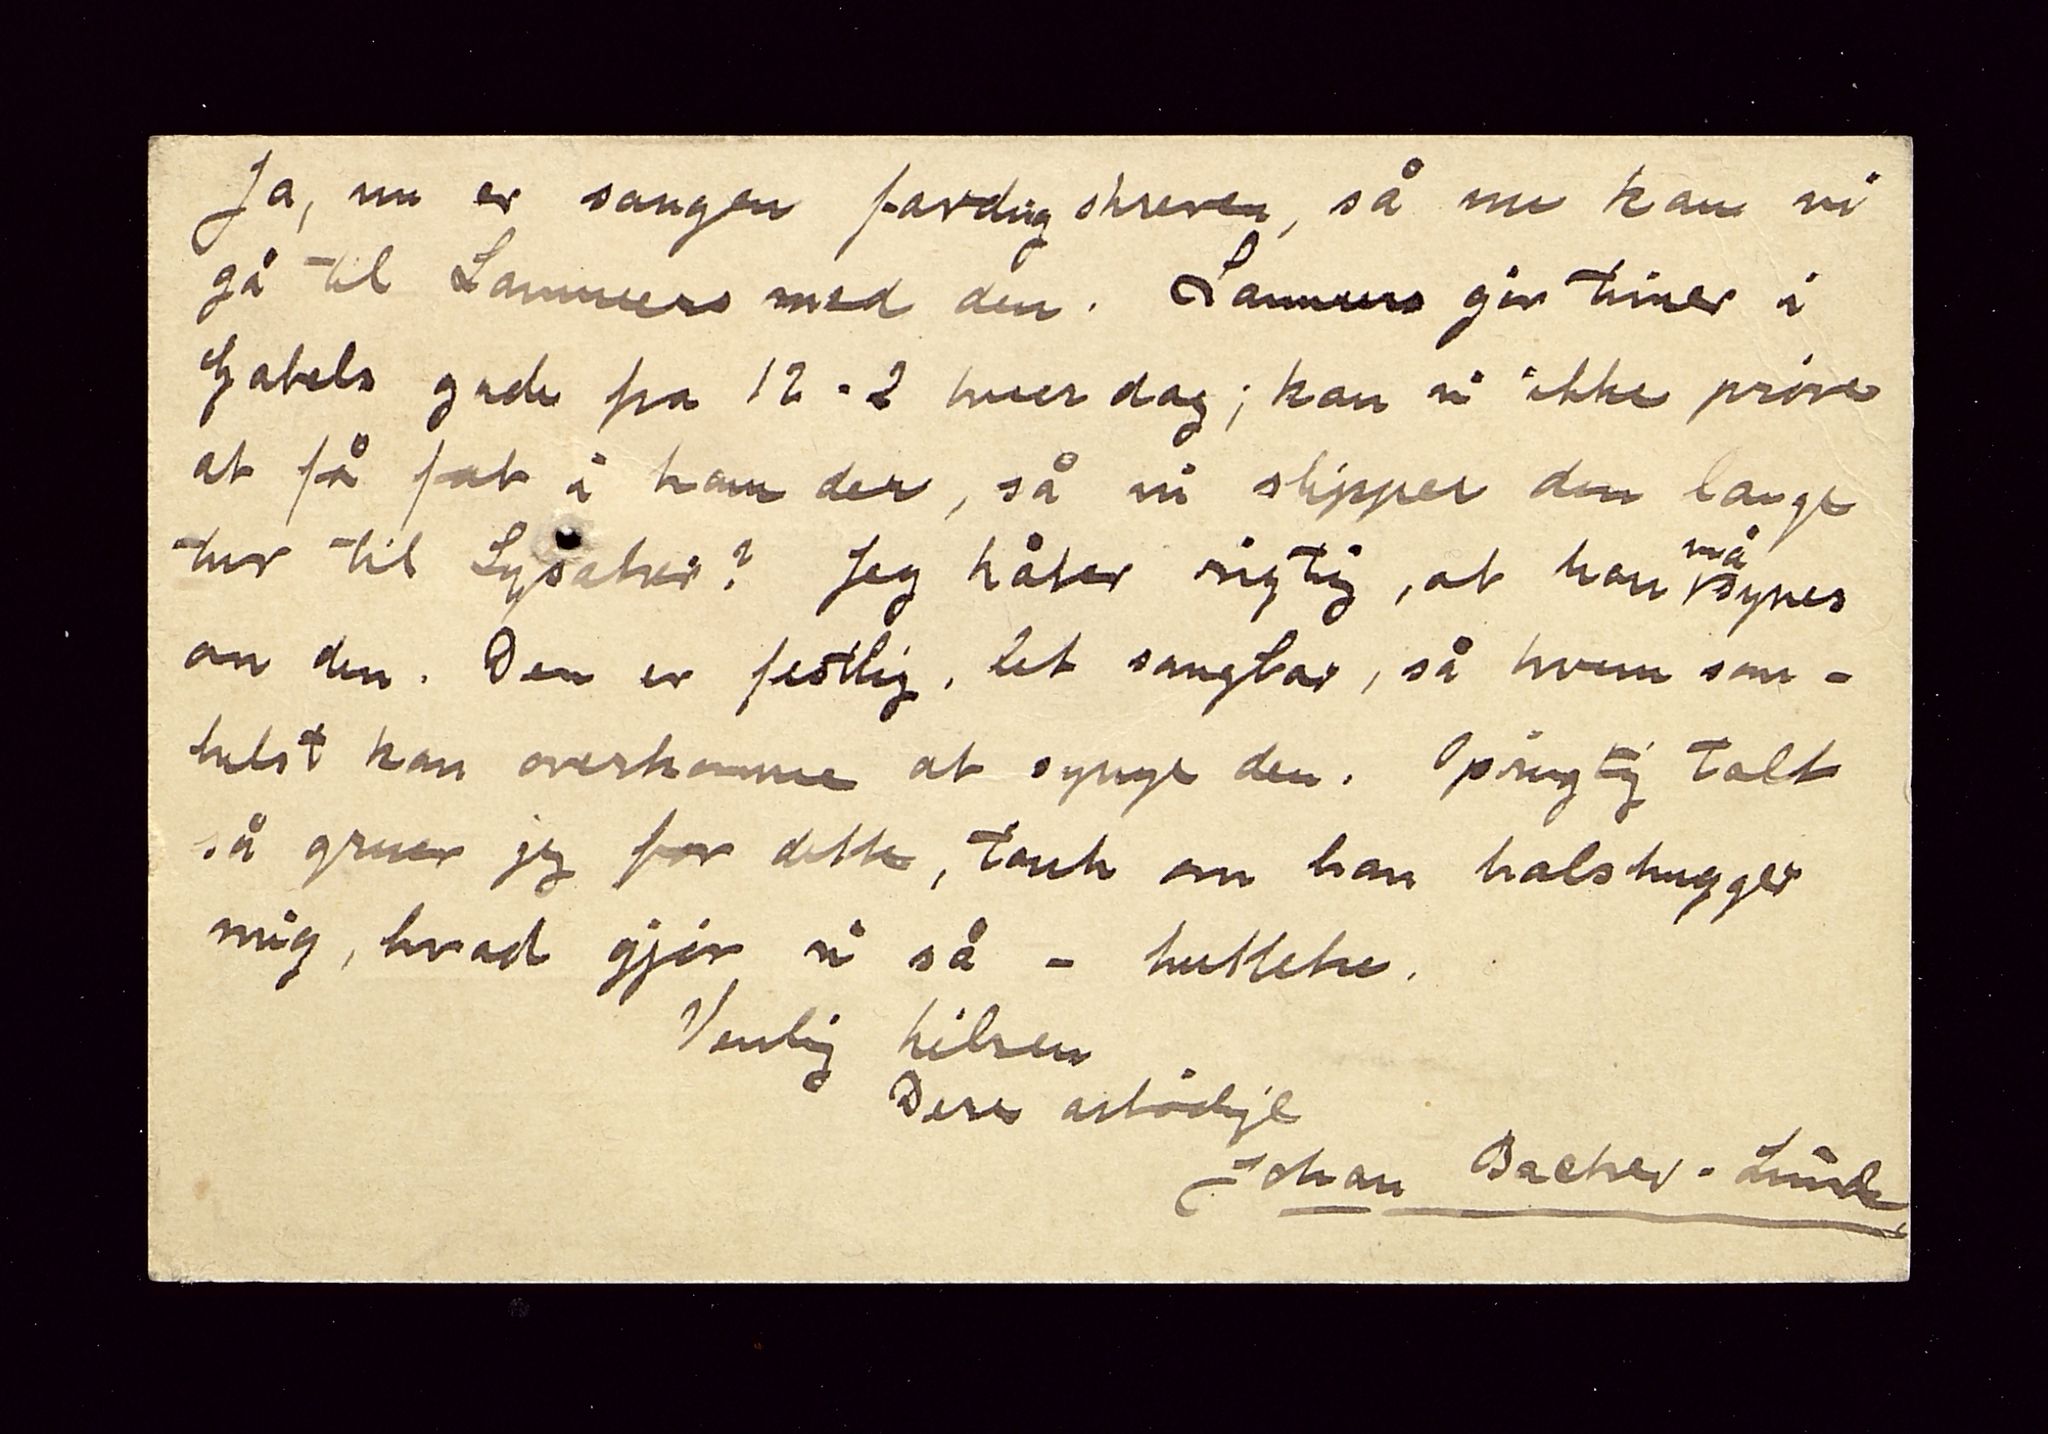 Ja, nu er sangen færdig skreven, så nu kan vi
gå til Lammers med den. Lammers gir timer i
Gabels gade fra 12-2 hver dag; kan vi ikke prøve
at få fat i ham der, så vi slipper den lange
tur til Lysaker? Jeg håber rigtig, at han må synes
om den. Den er festlig, let sangbar, så hvem som-
helst kan overkomme at synge den. Oprigtig talt
så gruer jeg for dette, tænk om han halshugger
mig, hvad gjør vi så – huttetu.
Venlig hilsen
Deres ærbødige
Johan Backer-Lunde